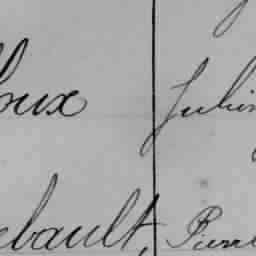 oux Julien
ebault, Pierre